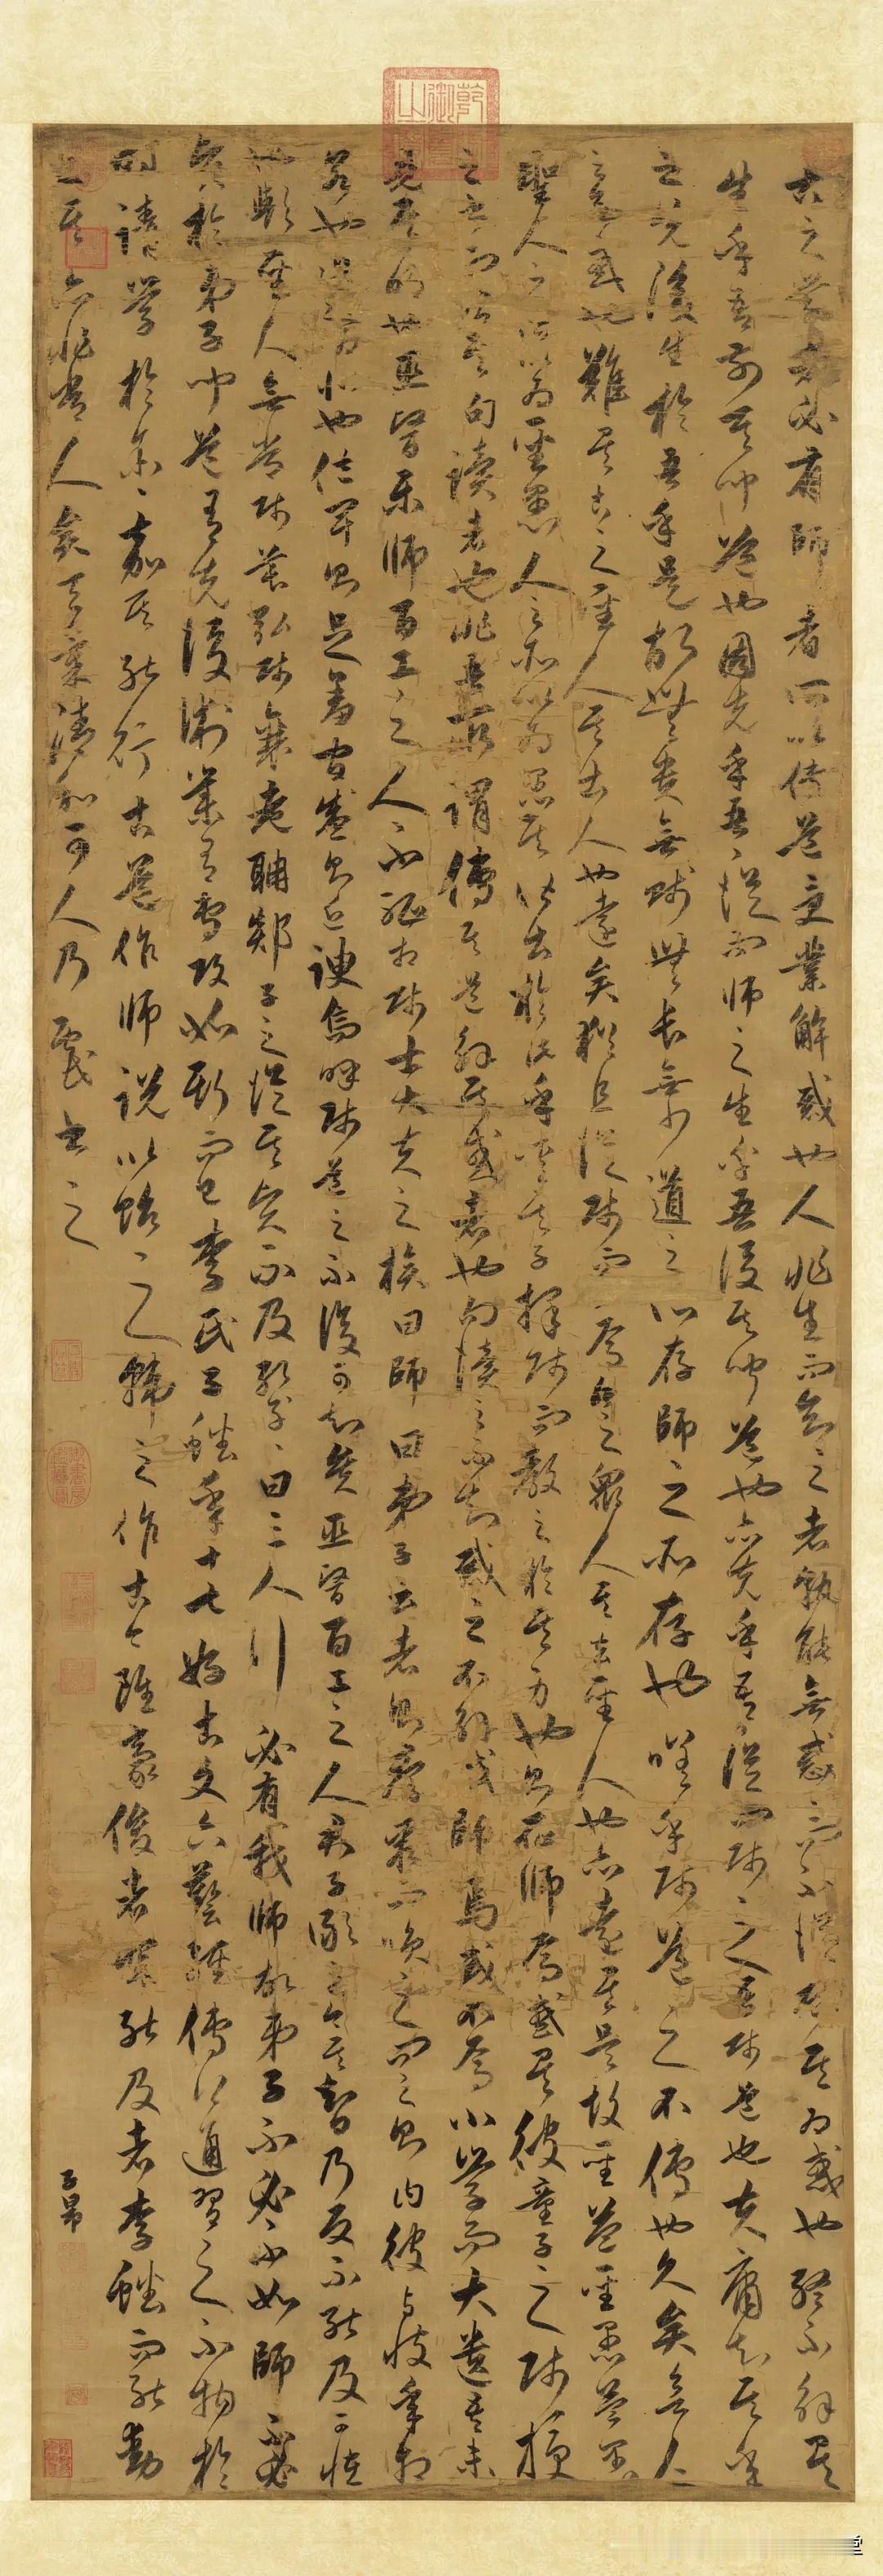 古之學者必有師者所以傳道受業解惑也人非生而知之者孰能無惑而不從師其為惑也終不解矣
生乎吾前其聞道也固先乎吾吾從而師之生乎吾後其聞道也亦先乎吾吾從而師之吾師道也夫庸知其年
之先後生於吾乎是故無貴無賤無長無少道之所存師之所存也嗟乎師道之不傳也久矣欲人
之無惑也難矣古之聖人其出人也遠矣猶且從師而問焉今之眾人其去聖人也亦遠矣是故聖益聖愚益愚
聖人之所以為聖愚人之所以為愚其皆出於此乎愛其子擇師而教之於其身也則恥師焉惑矣彼童子之師授
之書而習其句讀者也非吾所謂傳其道解其惑者也句讀之不知惑之不解或師焉或不焉小學而大遺吾未
見其明也巫醫樂師百工之人不恥相師士大夫之族曰師曰弟子云者則群聚而笑之問之則曰彼與彼年相
若也道相似也位卑則足羞官盛則近諛嗚呼師道之不復可知矣巫醫百工之人君子不齒今其智乃反不能及可怪
也歟聖人無常師萇弘師襄老聃郯子之徒其賢不及孔子孔子曰三人行必有我師故弟子不必不如師不必
賢於弟子聞道有先後術業有專攻如斯而已李氏子蟠年十七好古文六藝經傳皆通習之不拘於
時請學於余余嘉其能行古道作師說以貽之韓之作古今雖豪俊者罕能及者李蟠而能勤
之其亦非常人矣天章清和可人乃書之
子昂